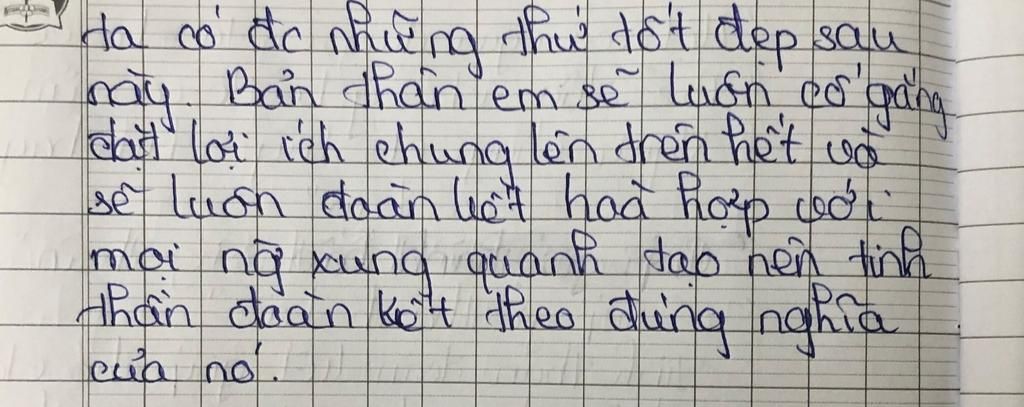 ta có đc những thứ tốt đẹp sau
này. Bản thân em sẽ luôn cố gắng
đặt lợi ích chung lên trên hết và
sẽ luôn đoàn kết hoà hợp với
mọi ng xung quanh tạo nên tinh
thần đoàn kết theo đúng nghĩa
của nó.